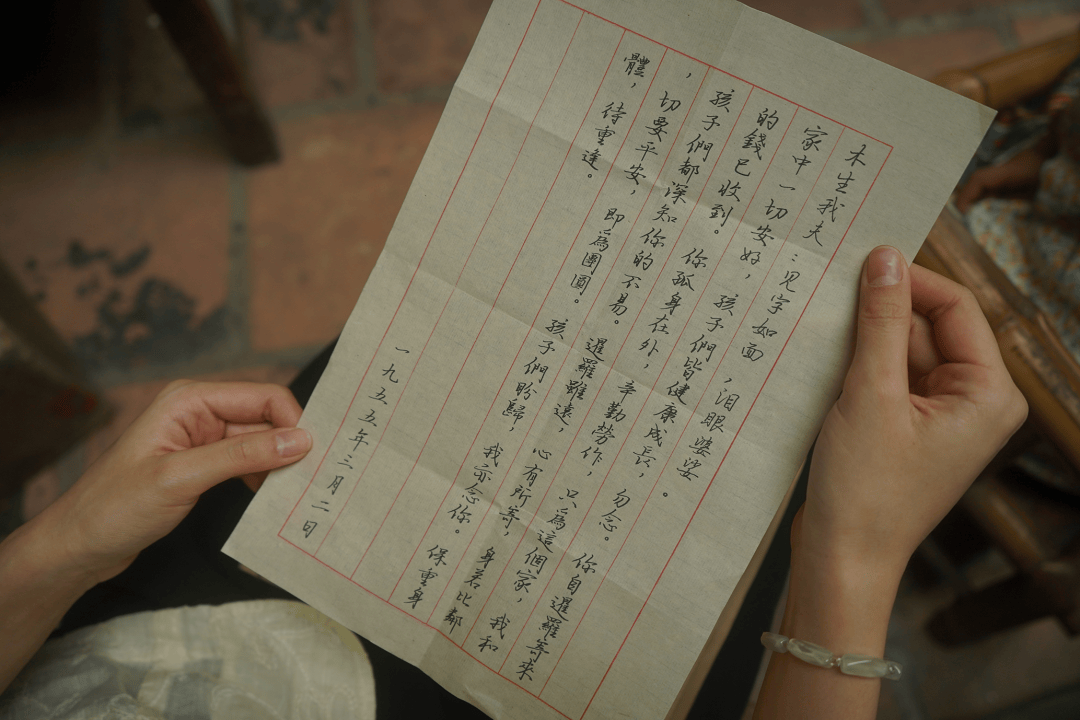 木生我夫：见字如面，泪眼婆娑。
家中一切安好，孩子們皆健康成長，勿念。你自暹羅寄來
的錢已收到。你孤身在外，辛勤勞作，只為這個家，我和
孩子們都深知你的不易。暹羅雖遠，心有所寄，身若比都
，切要平安，即為團圓。孩子們盼歸，我亦念你。保重身
體，待重逢。
一九五五年三月二日